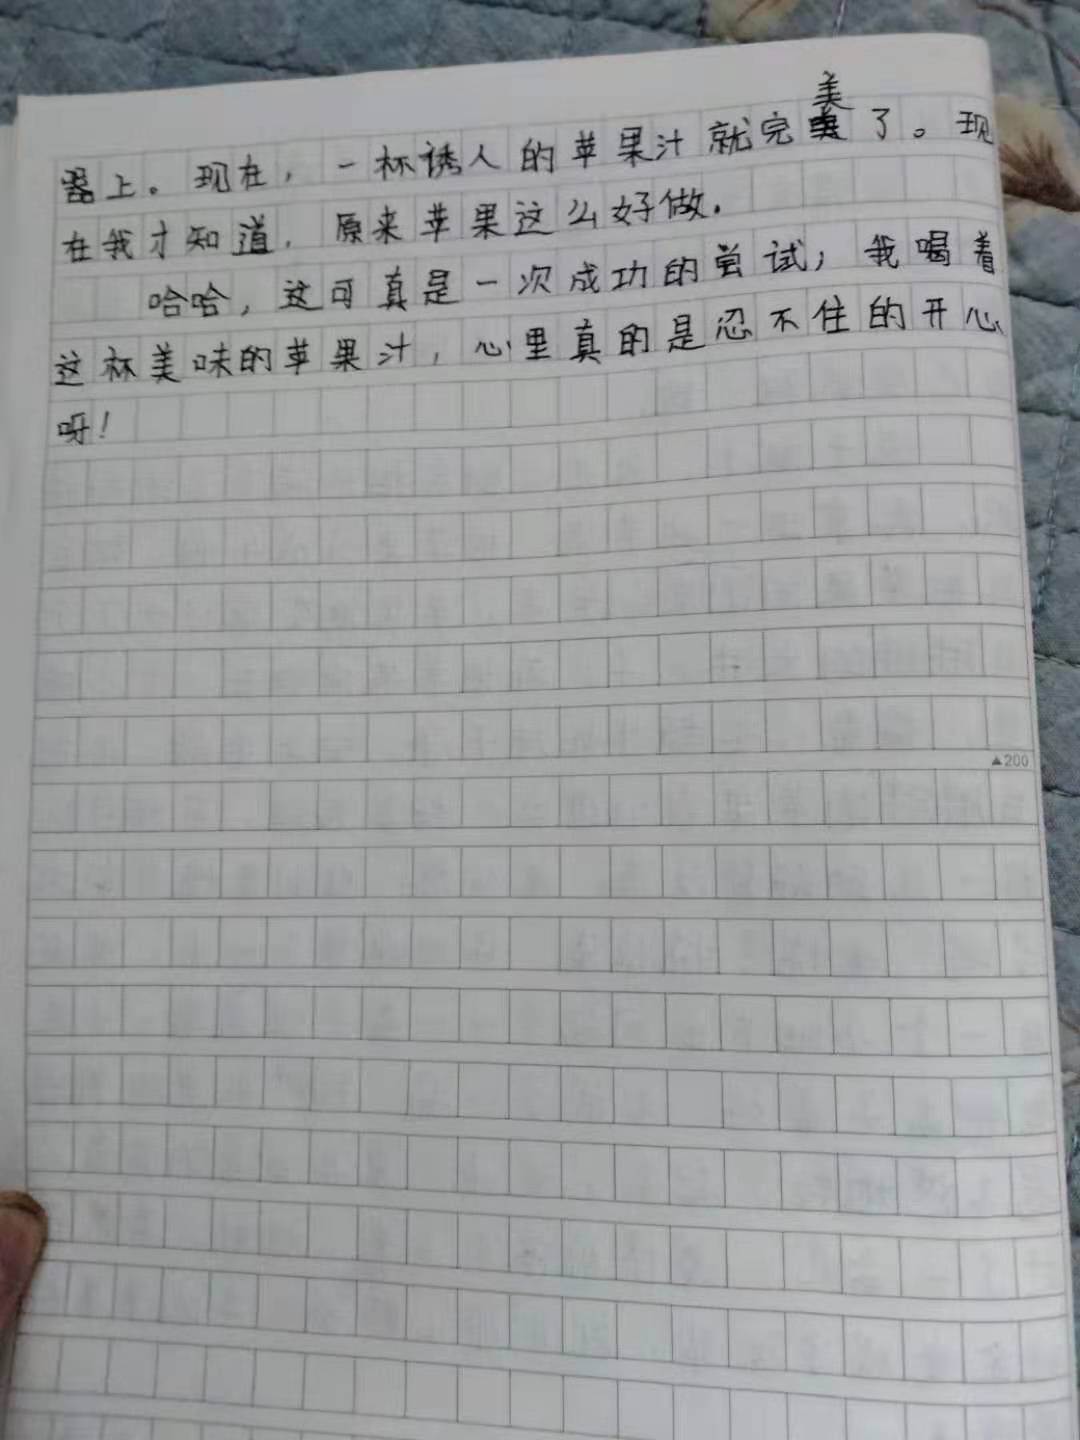 器上。现在，一杯诱人的苹果汁就完美了。现
在我才知道，原来苹果这么好做.
哈哈，这可真是一次成功的尝试，我喝着
这杯美味的苹果汁，心里真的是忍不住的开心
呀！
▲200